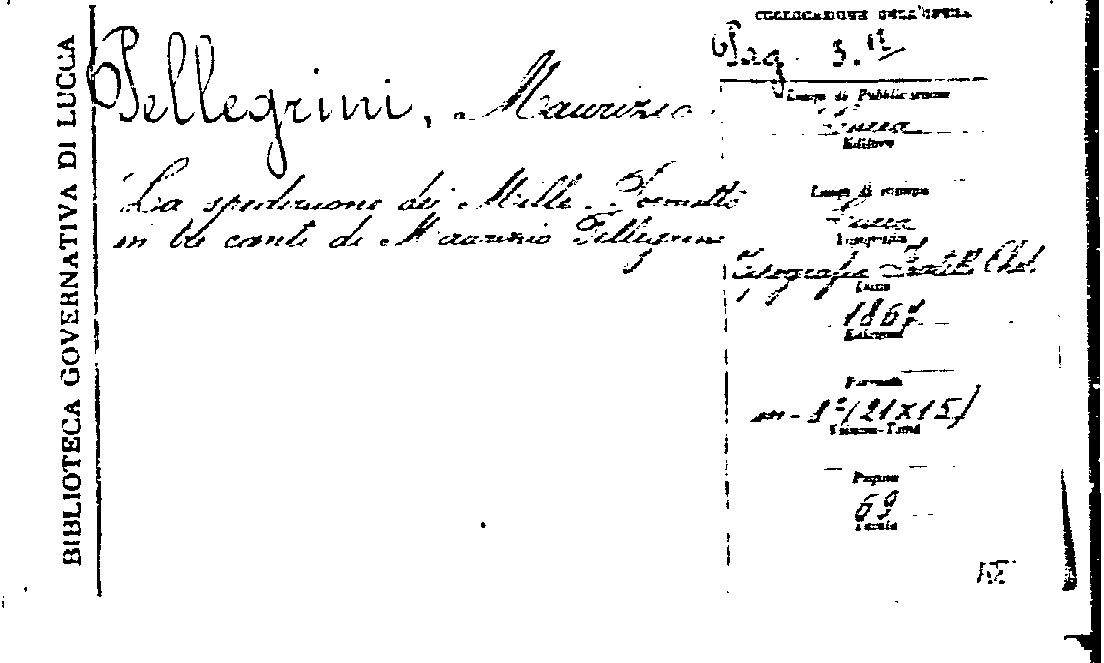 BIBLIOTECA GOVERNATIVA DI LUCCA
Pellegrini, Maurizio.
La spedizione dei Mille. Poemetto
in tre canti di Maurizio Pellegrini
COLLOCAZIONE DELL'OPERA
Pag. 3.
Luogo di Pubblicazione
Lucca
Editore
Luogo di stampa
Lucca
Tipografia
Tipografia Fratelli
Data
1867
Edizione
Formato
in-8° (21x15)
Volume-Tomi
Pagine
69
Tavole